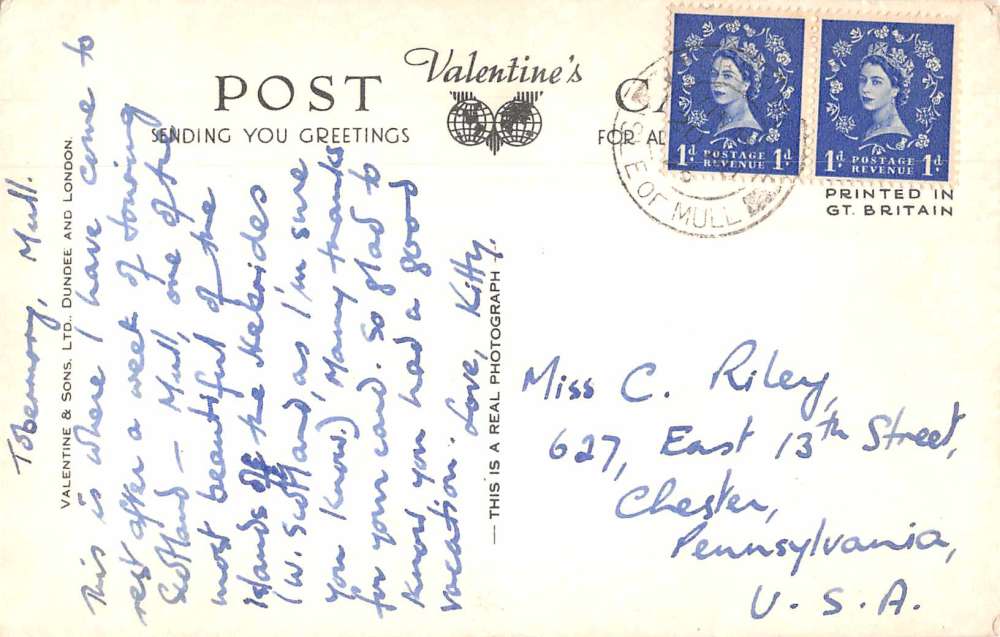 Valentine's
POST CA
SENDING YOU GREETINGS
FOR AD
1d POSTAGE REVENUE 1d
1d POSTAGE REVENUE 1d
ISLE OF MULL
PRINTED IN
GT. BRITAIN
VALENTINE & SONS. LTD., DUNDEE AND LONDON.
Tobermory, Mull.
This is where I have come to
rest after a week of touring
Scotland – Mull, one of the
most beautiful of the
Islands of the Hebrides
(W. Scotland, as I'm sure
you know.) Many thanks
for your card. So glad to
know you had a good
vacation. Love, Kitty.
— THIS IS A REAL PHOTOGRAPH
Miss C. Riley,
627, East 13th Street,
Chester,
Pennsylvania,
U. S. A.